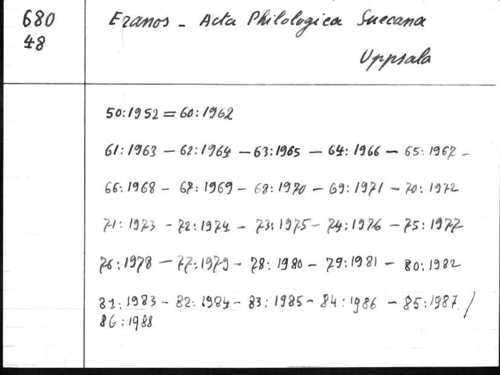 680
48
Eranos - Acta Philologica Suecana
Uppsala
50:1952 = 60:1962
61:1963 - 62:1964 - 63:1965 - 64:1966 - 65:1967 -
66:1968 - 67:1969 - 68:1970 - 69:1971 - 70:1972
71:1973 - 72:1974 - 73:1975 - 74:1976 - 75:1977
76:1978 - 77:1979 - 78:1980 - 79:1981 - 80:1982
81:1983 - 82:1984 - 83:1985 - 84:1986 - 85:1987 /
86:1988